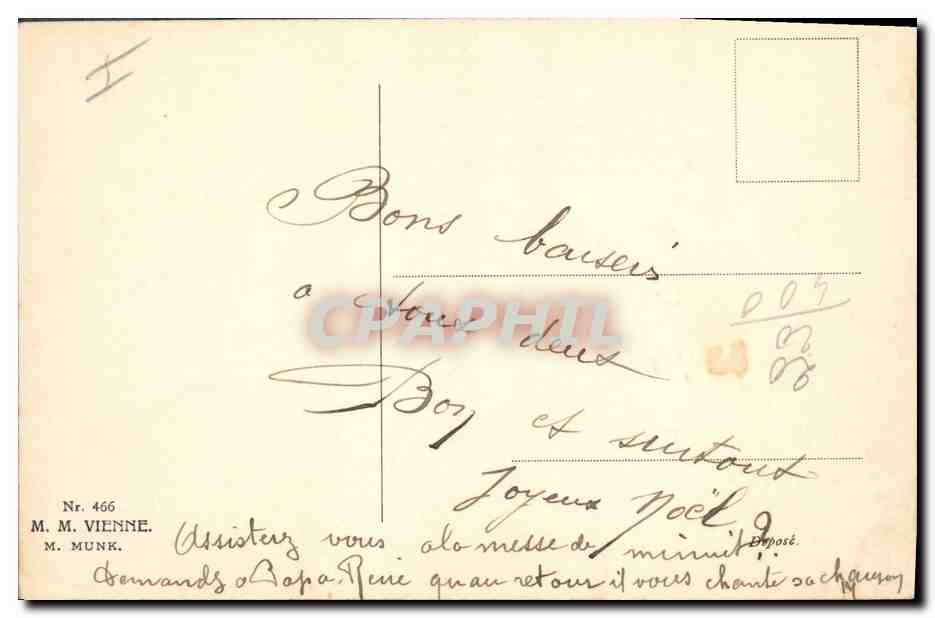 I
Bons baisers
a tous deux
Bon et surtout
Joyeux Noël
Nr. 466
M. M. VIENNE.
M. MUNK.
Déposé.
Assisterez vous a la messe de minuit ?
Demandez a Papa René qu'au retour il vous chante sa chanson
CPAPHIL